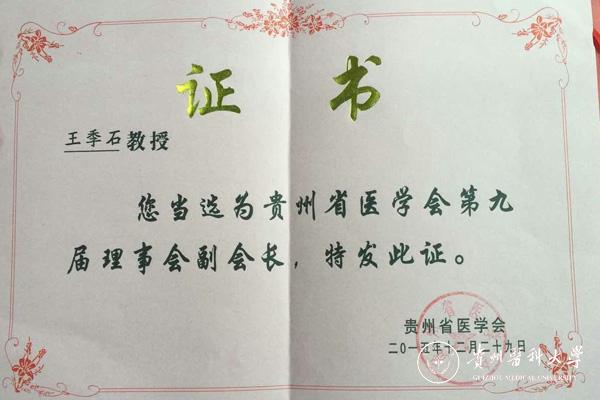 证 书
王季石教授
您当选为贵州省医学会第九
届理事会副会长，特发此证。
贵州省医学会
二〇一五年十二月二十九日
贵州医科大学
GUIZHOU MEDICAL UNIVERSITY